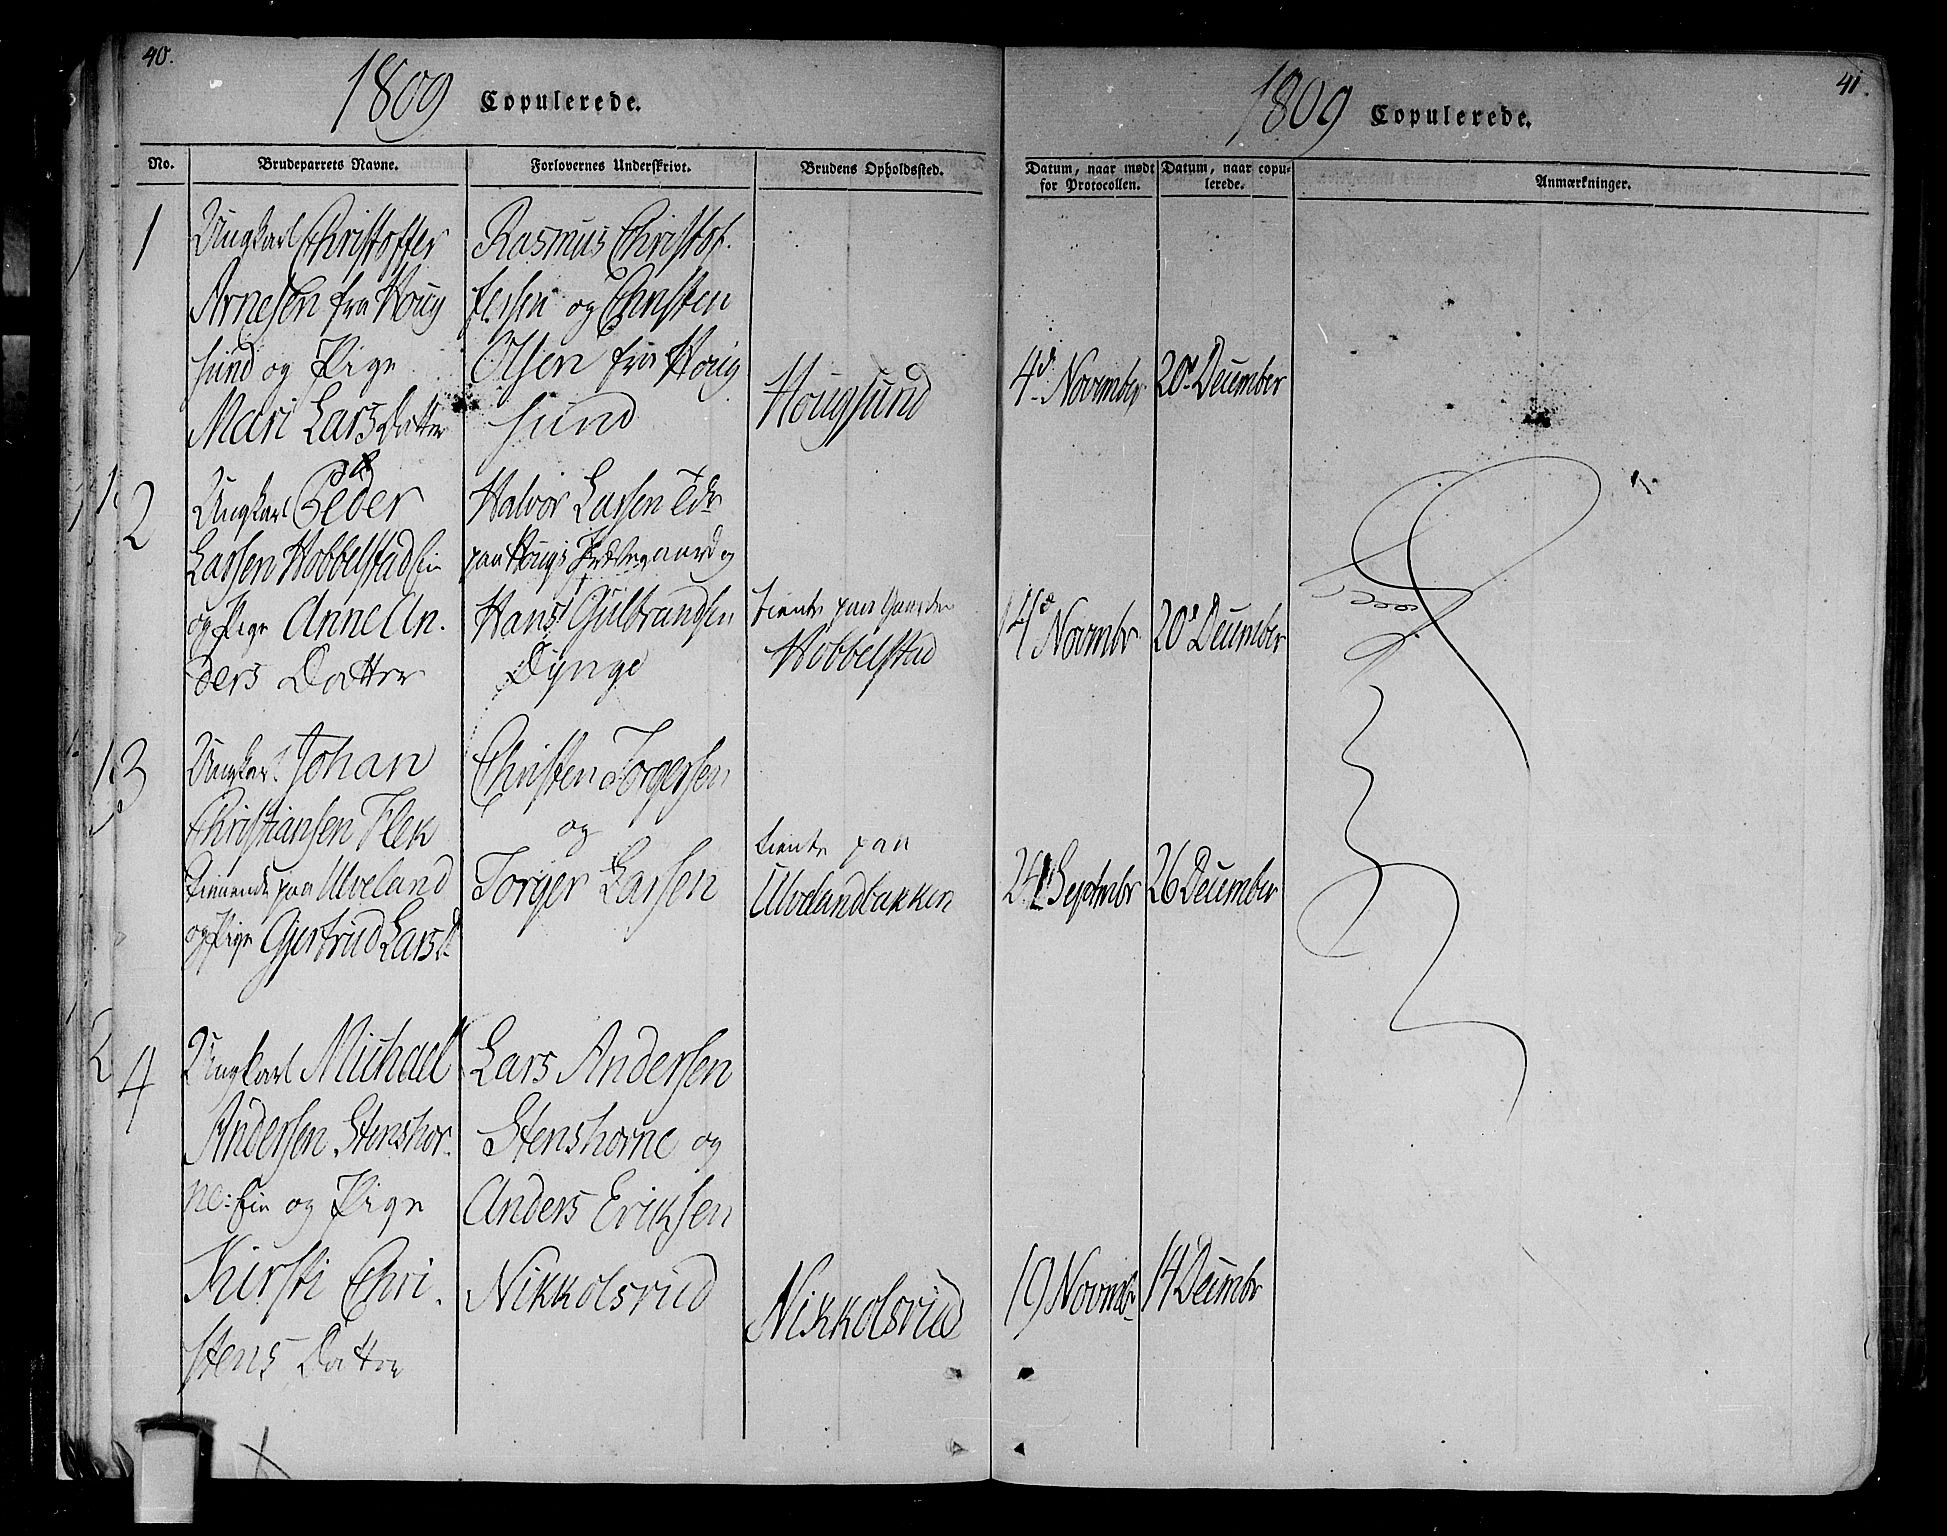 40.
1809 Copulerede.
No.
Brudeparrets Navne.
Forlovernes Underskrivt.
Brudens Opholdssted.
1
Ungkarl Christoffer
Arnesen fra Houg
sund og Pige
Mari Larsdatter
Rasmus Christof-
fersen og Christen
Olsen fra Houg
sund
Hougsund
2
Ungkarl Peder
Larsen Hobbelstad
og Pige Anne An-
ders Datter
Halvor Larsen
paa Hougs og
Hans Gulbrandsen
Dynge
tiente paa Gaarden
Hobbelstad
3
Ungkarl Johan
Christiansen Flek
tienende paa Ulveland
og Pige Gjertrud Larsd.
Christen Torgersen
og
Torger Larsen
tiente paa
Ulvelandbakken
4
Ungkarl Michael
Andersen Stenshor-
ne: og Pige
Kirsti Chri-
stens Datter
Lars Andersen
Stenshorne og
Anders Eriksen
Nikkolsrud
Nikkolsrud
41.
1809 Copulerede.
Datum, naar mødt
for Protocollen.
Datum, naar copu-
lerede.
Anmærkninger.
4d November
20d December
14d Novembr
20d December
24 Septembr
26 December
19 Novembr
14 Decembr